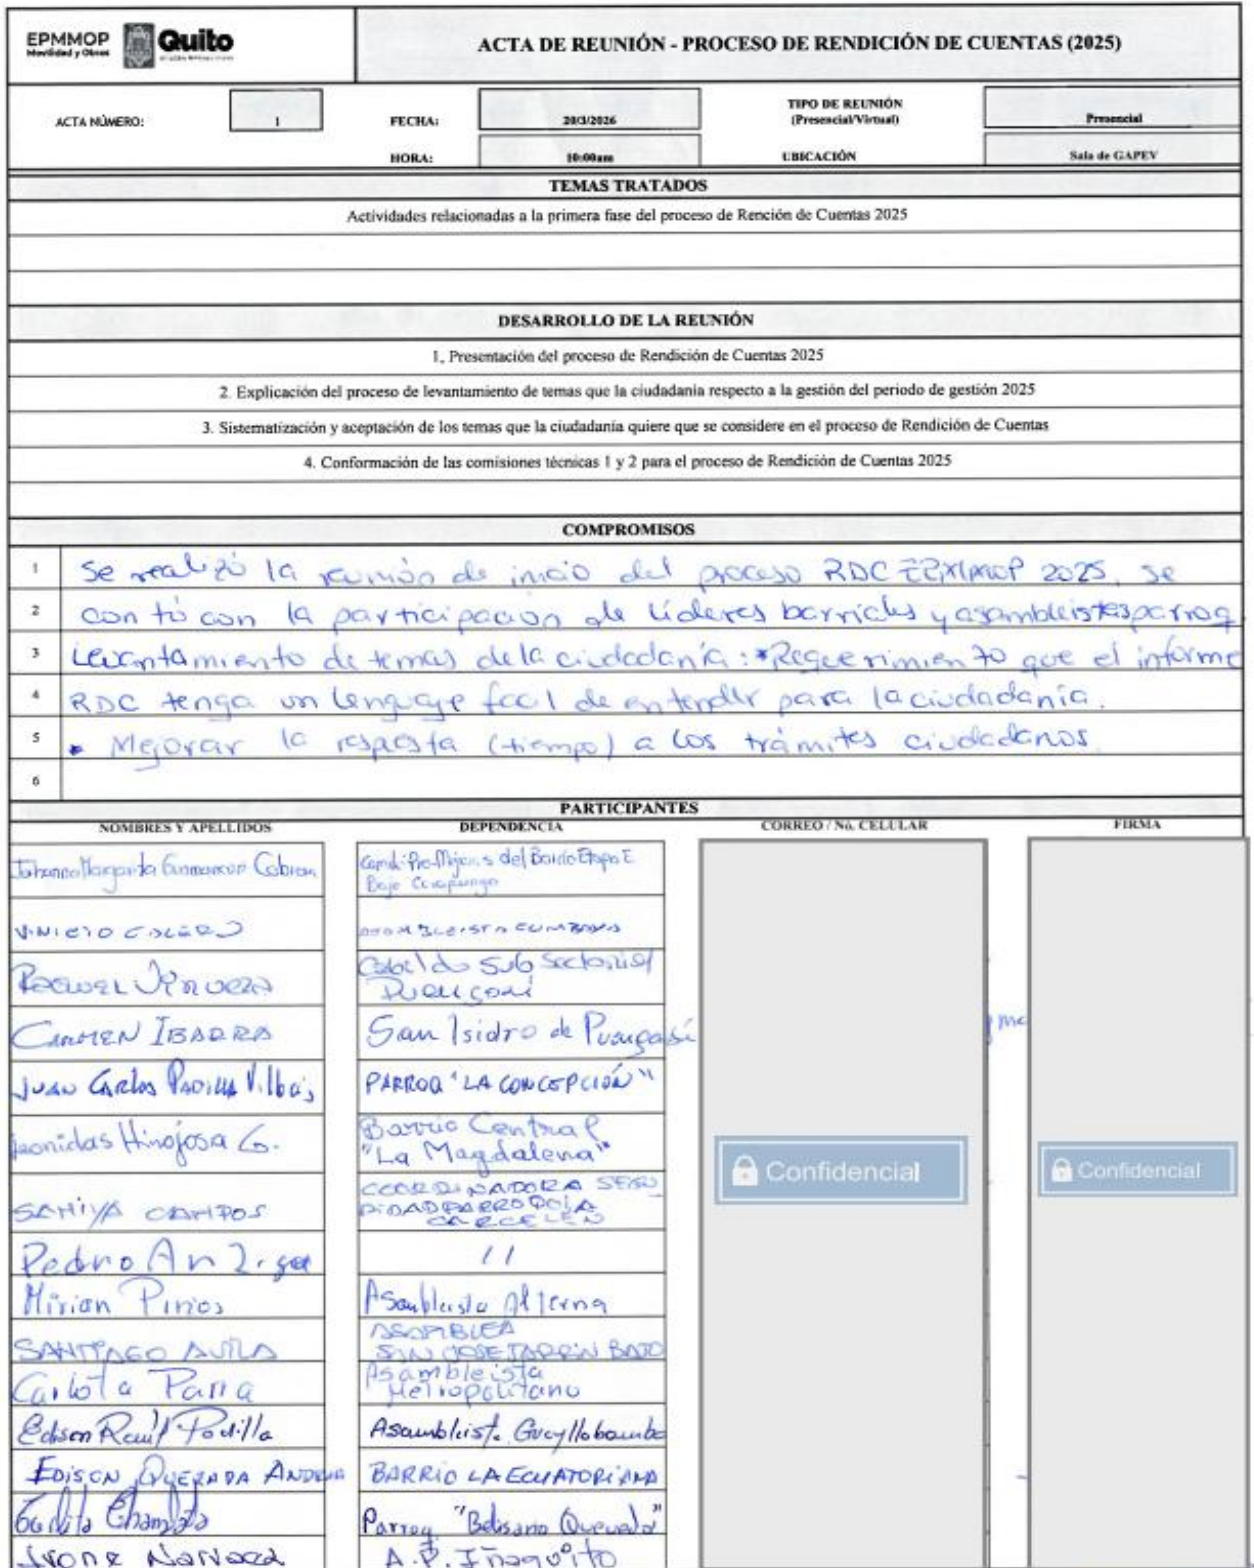 EPMMOP
Movilidad y Obras
Quito
ACTA DE REUNIÓN - PROCESO DE RENDICIÓN DE CUENTAS (2025)
ACTA NÚMERO: 1
FECHA: 20/3/2026
TIPO DE REUNIÓN
(Presencial/Virtual)
Presencial
HORA: 10:00am
UBICACIÓN
Sala de GAPEV
TEMAS TRATADOS
Actividades relacionadas a la primera fase del proceso de Rención de Cuentas 2025
DESARROLLO DE LA REUNIÓN
1. Presentación del proceso de Rendición de Cuentas 2025
2. Explicación del proceso de levantamiento de temas que la ciudadanía respecto a la gestión del periodo de gestión 2025
3. Sistematización y aceptación de los temas que la ciudadanía quiere que se considere en el proceso de Rendición de Cuentas
4. Conformación de las comisiones técnicas 1 y 2 para el proceso de Rendición de Cuentas 2025
COMPROMISOS
1 Se realizó la reunión de inicio del proceso RDC 2025, se
2 contó con la participación de líderes barriales y asambleistas parroq
3 Levantamiento de temas de la ciudadanía: *Requerimiento que el informe
4 RDC tenga un lenguaje facil de entender para la ciudadanía.
5 * Mejorar la respesta (tiempo) a los trámites ciudadanos
6
PARTICIPANTES
NOMBRES Y APELLIDOS DEPENDENCIA CORREO / No. CELULAR FIRMA
Margarita del Barrio Etapa E
Bajo
VINICIO CUMBAYA
RAQUEL Cabildo Sub Sectorial
CARMEN IBARRA San Isidro de Puengasí
JUAN CARLOS PADILLA PARROQ "LA CONCEPCIÓN"
Leonidas Hinojosa G. Barrio Central
"La Magdalena"
CAMPOS COORDINADORA
CARCELEN
Pedro //
Mirian Asambleista Alterna
SANTIAGO AVILA ASAMBLEA
SAN JOSE JARRIN BAJO
Carlota Parra Asambleista
Metropolitano
Edison Raúl Padilla Asambleista Guayllabamba
EDISON QUEZADA BARRIO LA ECUATORIANA
Parroq "Belisario Quevedo"
A.P. Iñaquito
Confidencial
Confidencial